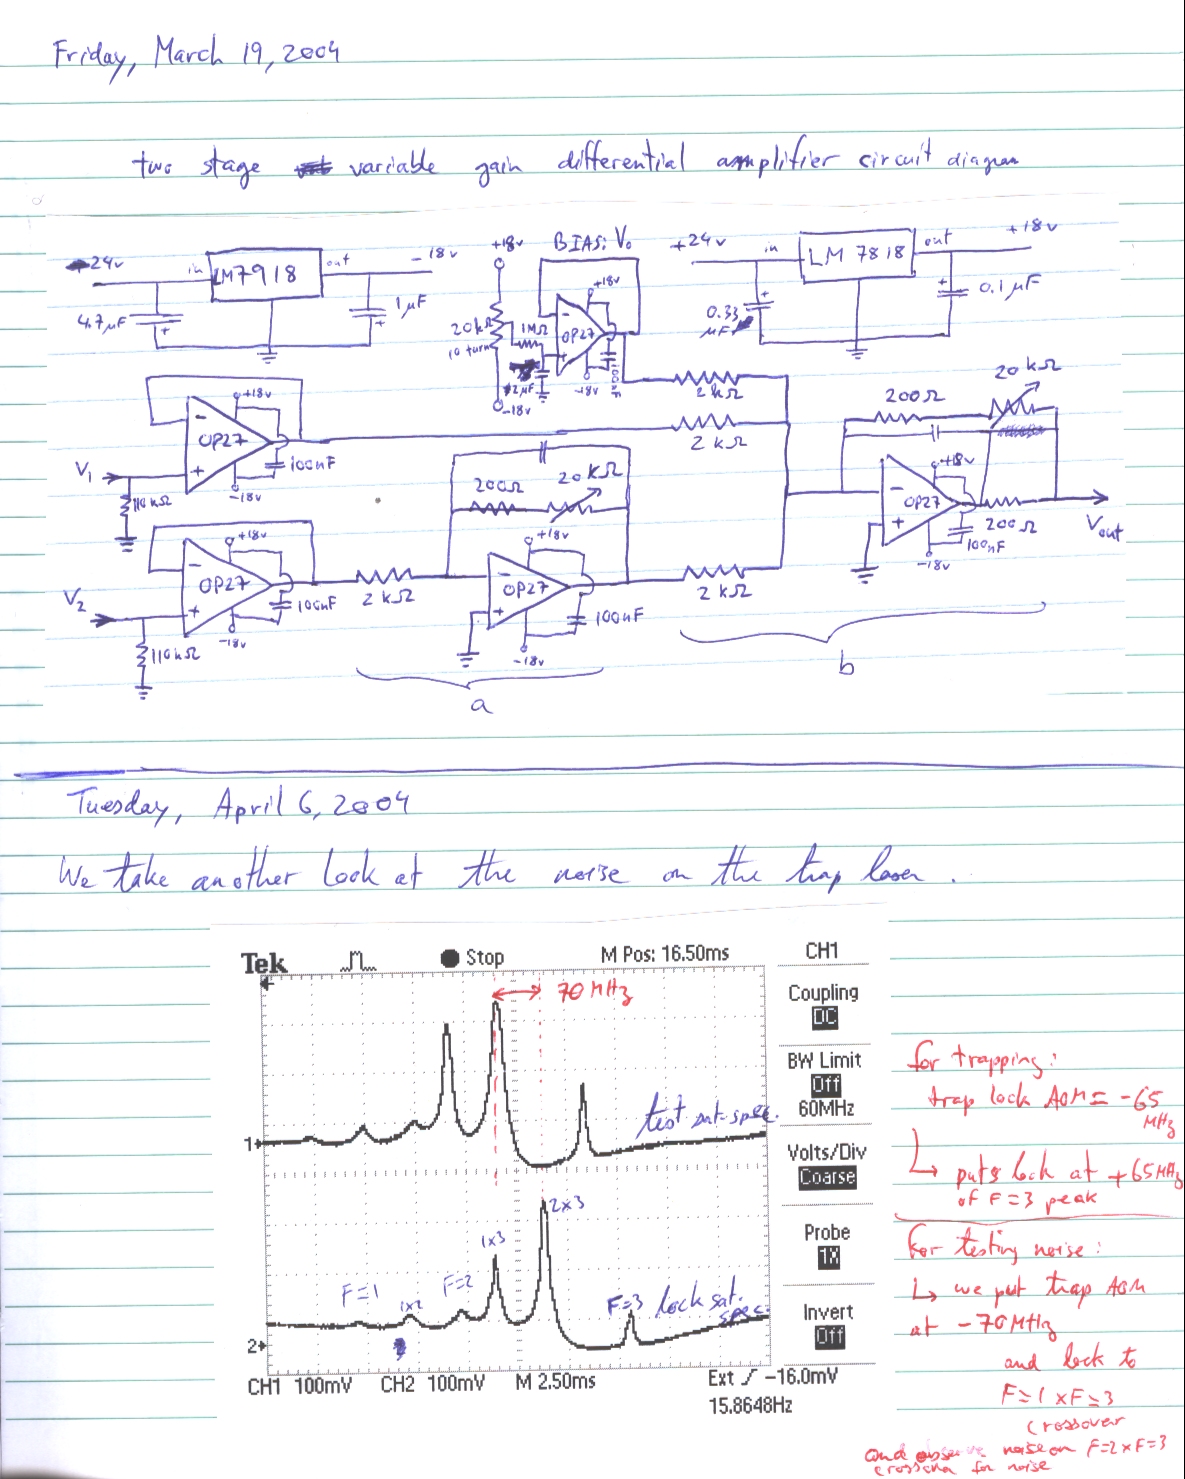 Friday, March 19, 2004
two stage variable gain differential amplifier circuit diagram
-24v
in
LM7918
out
-18v
4.7µF
1µF
+18v
20kΩ
10 turn
-18v
BIAS: V₀
1MΩ
+18v
OP27
-18v
2kΩ
+24v
in
LM 7818
out
+18v
0.33
µF
0.1µF
V₁
110kΩ
+18v
OP27
-18v
100nF
2kΩ
V₂
110kΩ
+18v
OP27
-18v
100nF
2kΩ
200Ω
20kΩ
+18v
OP27
-18v
100nF
2kΩ
200Ω
20kΩ
+18v
OP27
-18v
200Ω
100nF
Vout
a
b
Tuesday, April 6, 2004
We take another look at the noise on the trap laser.
Tek
Stop
M Pos: 16.50ms
CH1
Coupling
DC
BW Limit
Off
60MHz
Volts/Div
Coarse
Probe
1X
Invert
Off
70 MHz
1
test sat. spec.
2
F=1
1x2
F=2
1x3
2x3
F=3
lock sat.
spec.
CH1 100mV
CH2 100mV
M 2.50ms
Ext
-16.0mV
15.8648Hz
for trapping:
trap lock AOM = -65
MHz
puts lock at +65MHz
of F=3 peak
For testing noise:
we put trap AOM
at -70MHz
and lock to
F=1 x F=3
crossover
and observe noise on F=2 x F=3
crossover for noise